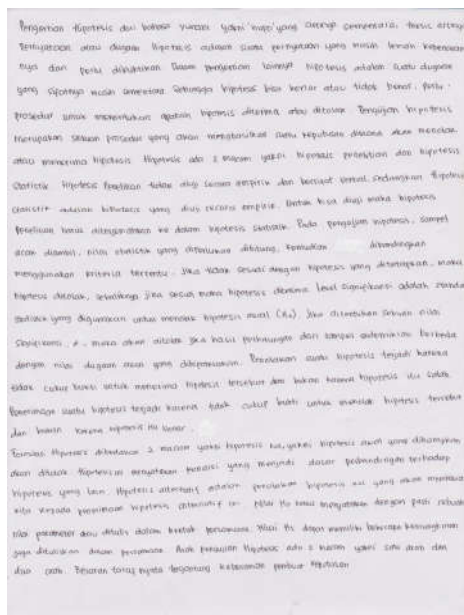 Pengertian Hipotesis dari bahasa yunani yakni 'hupo' yang artinya sementara, thesis artinya
Pernyataan atau dugaan Hipotesis adalah suatu pernyataan yang masih lemah kebenaran
nya dan perlu dibuktikan Dalam pengertian lainnya hipotesis adalah suatu dugaan
yang sifatnya masih sementara Sehingga hipotesis bisa benar atau tidak benar. perlu
prosedur untuk menentukan apakah hipotesis diterima atau ditolak Pengujian hipotesis
Merupakan sebuah prosedur yang akan menghasilkan suatu keputusan dimana akan menolak
atau menerima hipotesis Hipotesis ada 2 macam yakni hipotesis penelitian dan hipotesis
statistik Hipotesis Penelitian tidak diuji secara empirik dan bersifat verbal, sedangkan hipotesis
statistik adalah hipotesis yang diuji secara empirik. Untuk bisa diuji maka hipotesis
penelitian harus ke dalam hipotesis statistik. Pada pengujian hipotesis, sampel
acak diambil, nilai statistik yang diperlukan dihitung, kemudian dibandingkan
menggunakan kriteria tertentu. Jika tidak sesuai dengan hipotesis yang ditetapkan, maka
hipotesis ditolak, sebaliknya jika sesuai maka hipotesis diterima Level signifikansi adalah standar
statistik yang digunakan untuk menolak hipotesis awal (H₀). Jika ditentukan sebuah nilai
signifikansi, α, maka akan ditolak jika hasil perhitungan dari sampel sedemikian berbeda
dengan nilai dugaan awal yang Penolakan suatu hipotesis terjadi karena
tidak cukup bukti untuk menerima hipotesis tersebut dan bukan karena hipotesis itu salah
Penerimaan suatu hipotesis terjadi karena tidak cukup bukti untuk menolak hipotesis tersebut
dan bukan karena hipotesis itu benar.
Hipotesis dibedakan 2 macam yakni hipotesis nol, yakni hipotesis awal yang diharapkan
akan ditolak Hipotesis ini menyatakan kondisi yang menjadi dasar pembandingan terhadap
hipotesis yang lain Hipotesis alternatif adalah penolakan hipotesis nol yang akan
bila terjadi penerimaan hipotesis alternatif ini Nilai H₀ harus menyatakan dengan pasti sebuah
nilai parameter atau ditulis dalam bentuk persamaan. Nilai H₁ dapat memiliki beberapa kemungkinan
juga dituliskan dalam persamaan. Arah pengujian Hipotesis ada 2 macam yakni satu arah dan
dua arah. Besaran taraf nyata tergantung keberanian pembuat keputusan